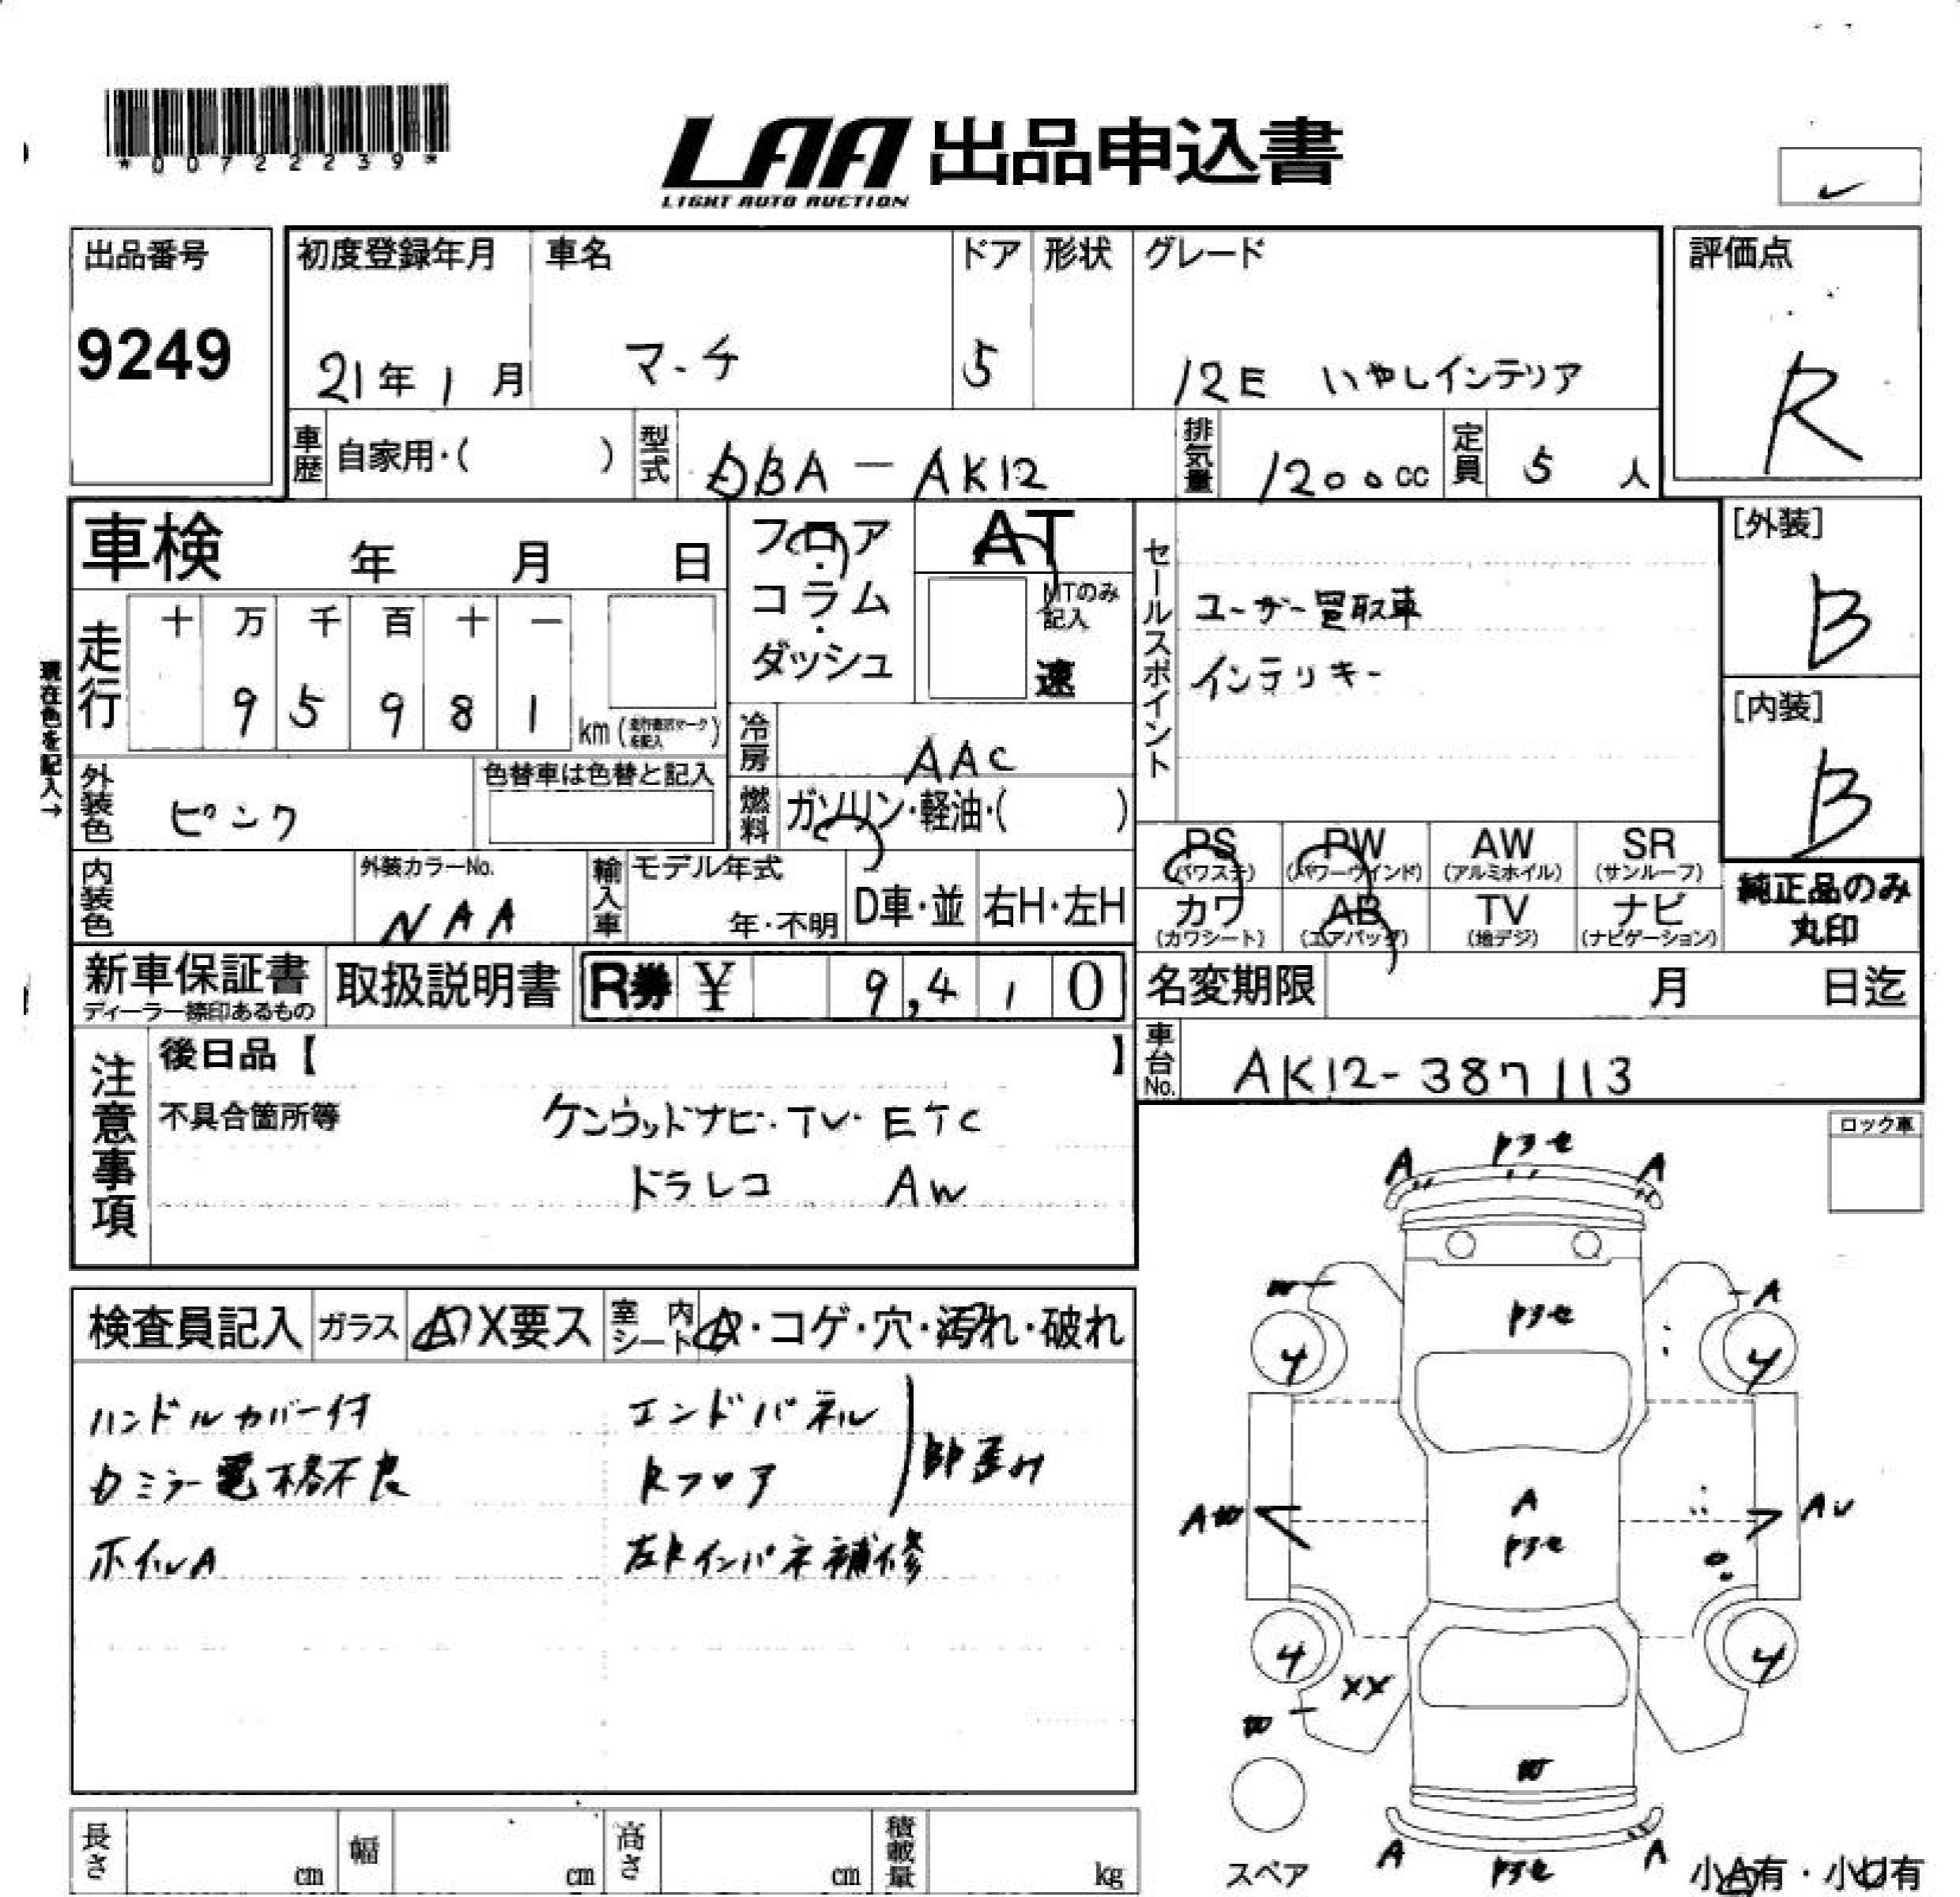 *00722239*
LAA 出品申込書
LIGHT AUTO AUCTION
出品番号
9249
初度登録年月
21年1月
車名
マーチ
ドア
5
形状
グレード
12E いやしインテリア
評価点
R
車歴
自家用・( )
型式
DBA－AK12
排気量
1200cc
定員
5人
車検 年 月 日
フロア・コラム・ダッシュ
AT
MTのみ記入
速
セールスポイント
ユーザー買取車
インテリキー
[外装]
B
[内装]
B
現在色を記入→
走行
十 万 千 百 十 一
9 5 9 8 1 km
冷房
AAC
外装色
ピンク
色替車は色替と記入
燃料
ガソリン・軽油・( )
内装色
外装カラーNo.
NAA
輸入車
モデル年式
年・不明
D車・並
右H・左H
PS
(パワステ)
PW
(パワーウインド)
AW
(アルミホイル)
SR
(サンルーフ)
カワ
(カワシート)
AB
(エアバッグ)
TV
(地デジ)
ナビ
(ナビゲーション)
純正品のみ
丸印
新車保証書
ディーラー捺印あるもの
取扱説明書
R券 ¥ 9,410
名変期限 月 日迄
車台No.
AK12-387113
注意事項
後日品【 】
不具合箇所等
ケンウッドナビ・TV・ETC
ドラレコ AW
ロック車
検査員記入
ガラス
A・X要ス
室内シート
A・コゲ・穴・汚れ・破れ
ハンドルカバー付
エンドパネル
カミラー電格不良
Rフロア
ホイルA
左Rインパネ補修
A
A
W
A
4
4
A
AW
AU
4
4
XX
W
W
A
A
スペア
小A有・小U有
長さ cm
幅 cm
高さ cm
積載量 kg